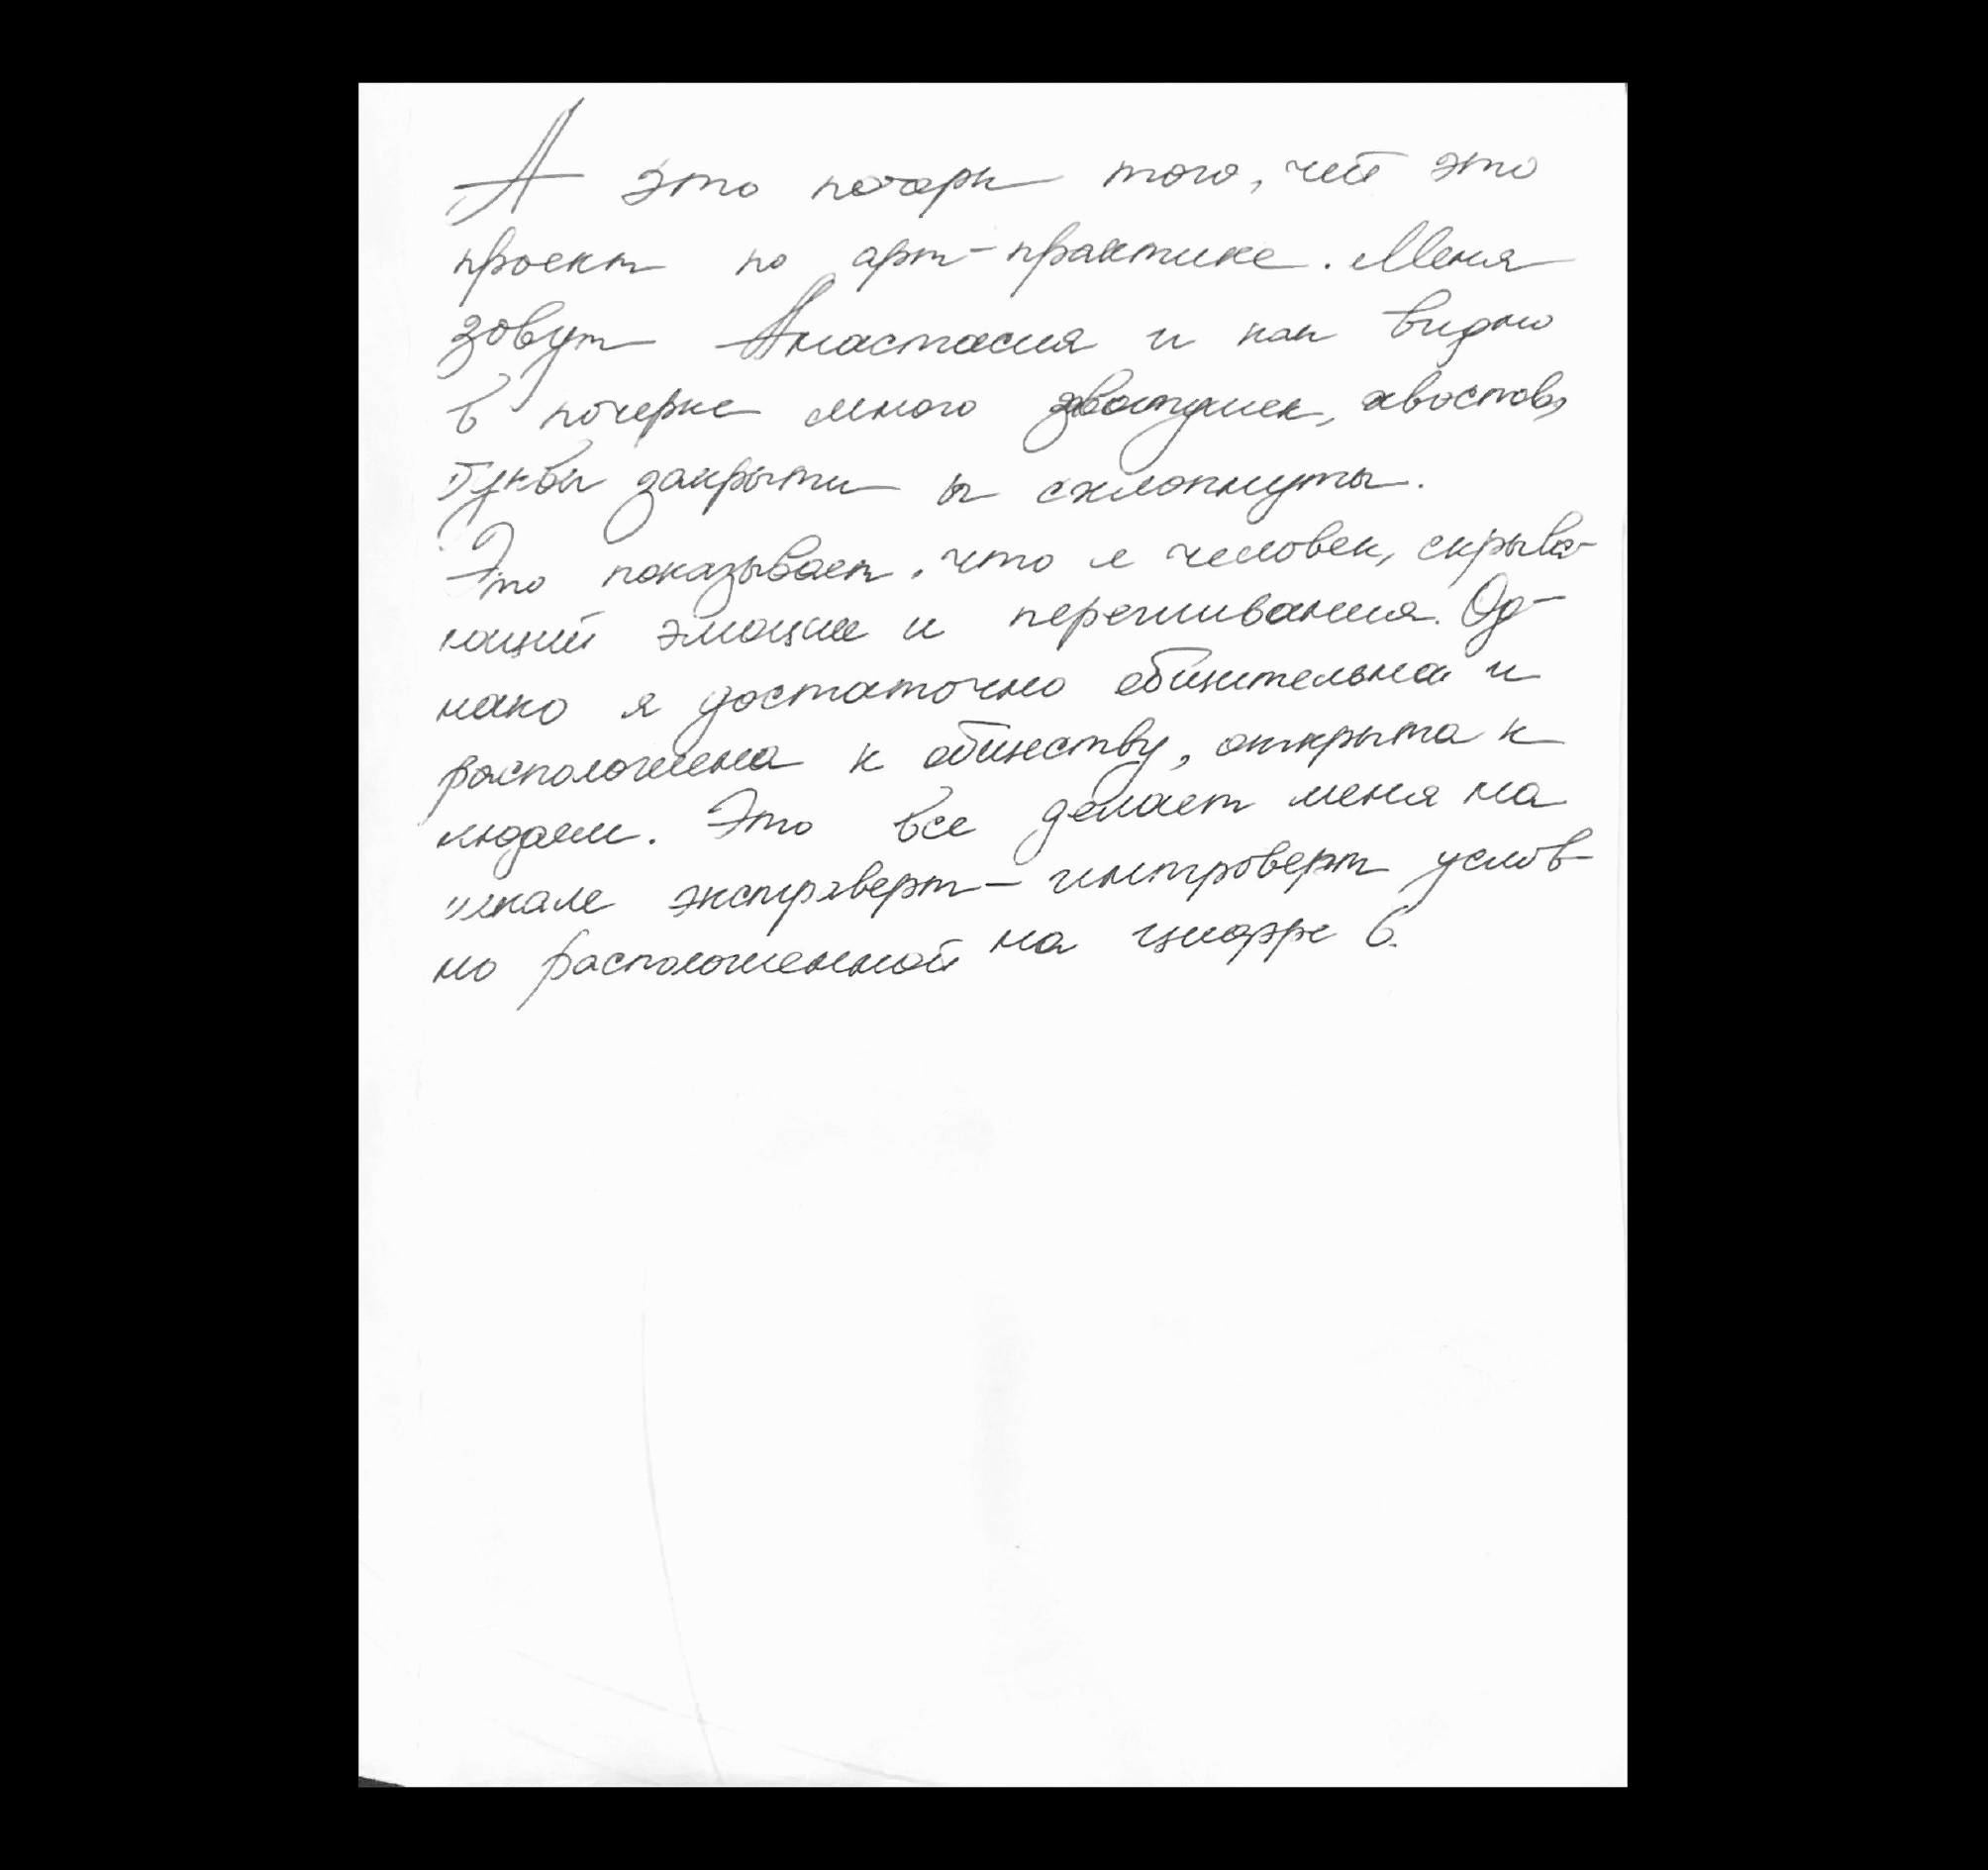 А это почерк того, чей это
проект по арт-практике. Меня
зовут Анастасия и как видно
в почерке много хвостов,
буквы закрыты и схлопнуты.
Это показывает, что я человек, скрыва-
ющий эмоции и переживания. Од-
нако я достаточно общительна и
расположена к обществу, открыта к
людям. Это все делает меня на
шкале экстраверт-интроверт услов-
но расположенной на цифре 6.